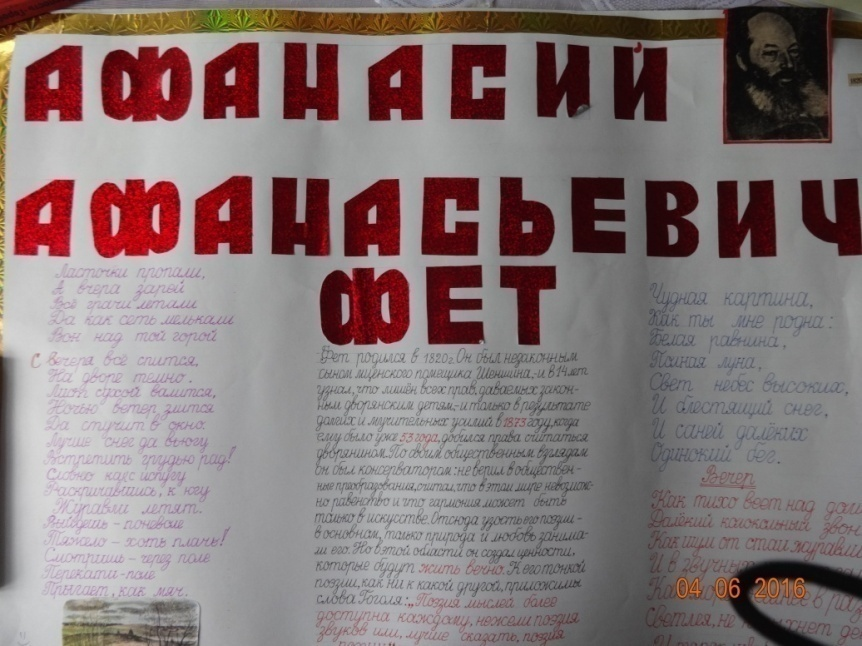 АФАНАСИЙ
АФАНАСЬЕВИЧ
ФЕТ
Ласточки пропали,
А вчера зарёй
Всё грачи летали
Да как сеть мелькали
Вон над той горой
С вечера всё спится,
На дворе темно.
Лист сухой валится,
Ночью ветер злится
Да стучит в окно.
Лучше снег да вьюгу
Встретить грудью рад!
Словно как с испугу
Раскричавшись, к югу
Журавли летят.
Выйдешь – поневоле
Тяжело – хоть плачь!
Смотришь – через поле
Перекати-поле
Прыгает, как мяч.
Фет родился в 1820г. Он был незаконным
сыном мценского помещика Шеншина,-и в 14 лет
узнал, что лишён всех прав, даваемых закон-
ным дворянским детям,-и только в результате
долгих и мучительных усилий в 1873 году, когда
ему было уже 53 года, добился права считаться
дворянином. По своим общественным взглядам
он был консерватором: не верил в обществен-
ные преобразования, считал, что в этом мире невозмож-
но равенство и что гармония может быть
только в искусстве. Отсюда узость его поэзии -
в основном, только природа и любовь занима-
ли его. Но в этой области он создал ценности,
которые будут жить вечно. К его тонкой
поэзии, как ни к какой другой, приложимы
слова Гоголя: „Поэзия мыслей более
доступна каждому, нежели поэзия
звуков или, лучше сказать, поэзия
Чудная картина,
Как ты мне родна:
Белая равнина,
Полная луна,
Свет небес высоких,
И блестящий снег,
И саней далёких
Одинокий бег.
Вечер
Как тихо веет над
Далёкий колокольный звон
Как шум от стаи
И в звучных
Светлея, не
04 06 2016